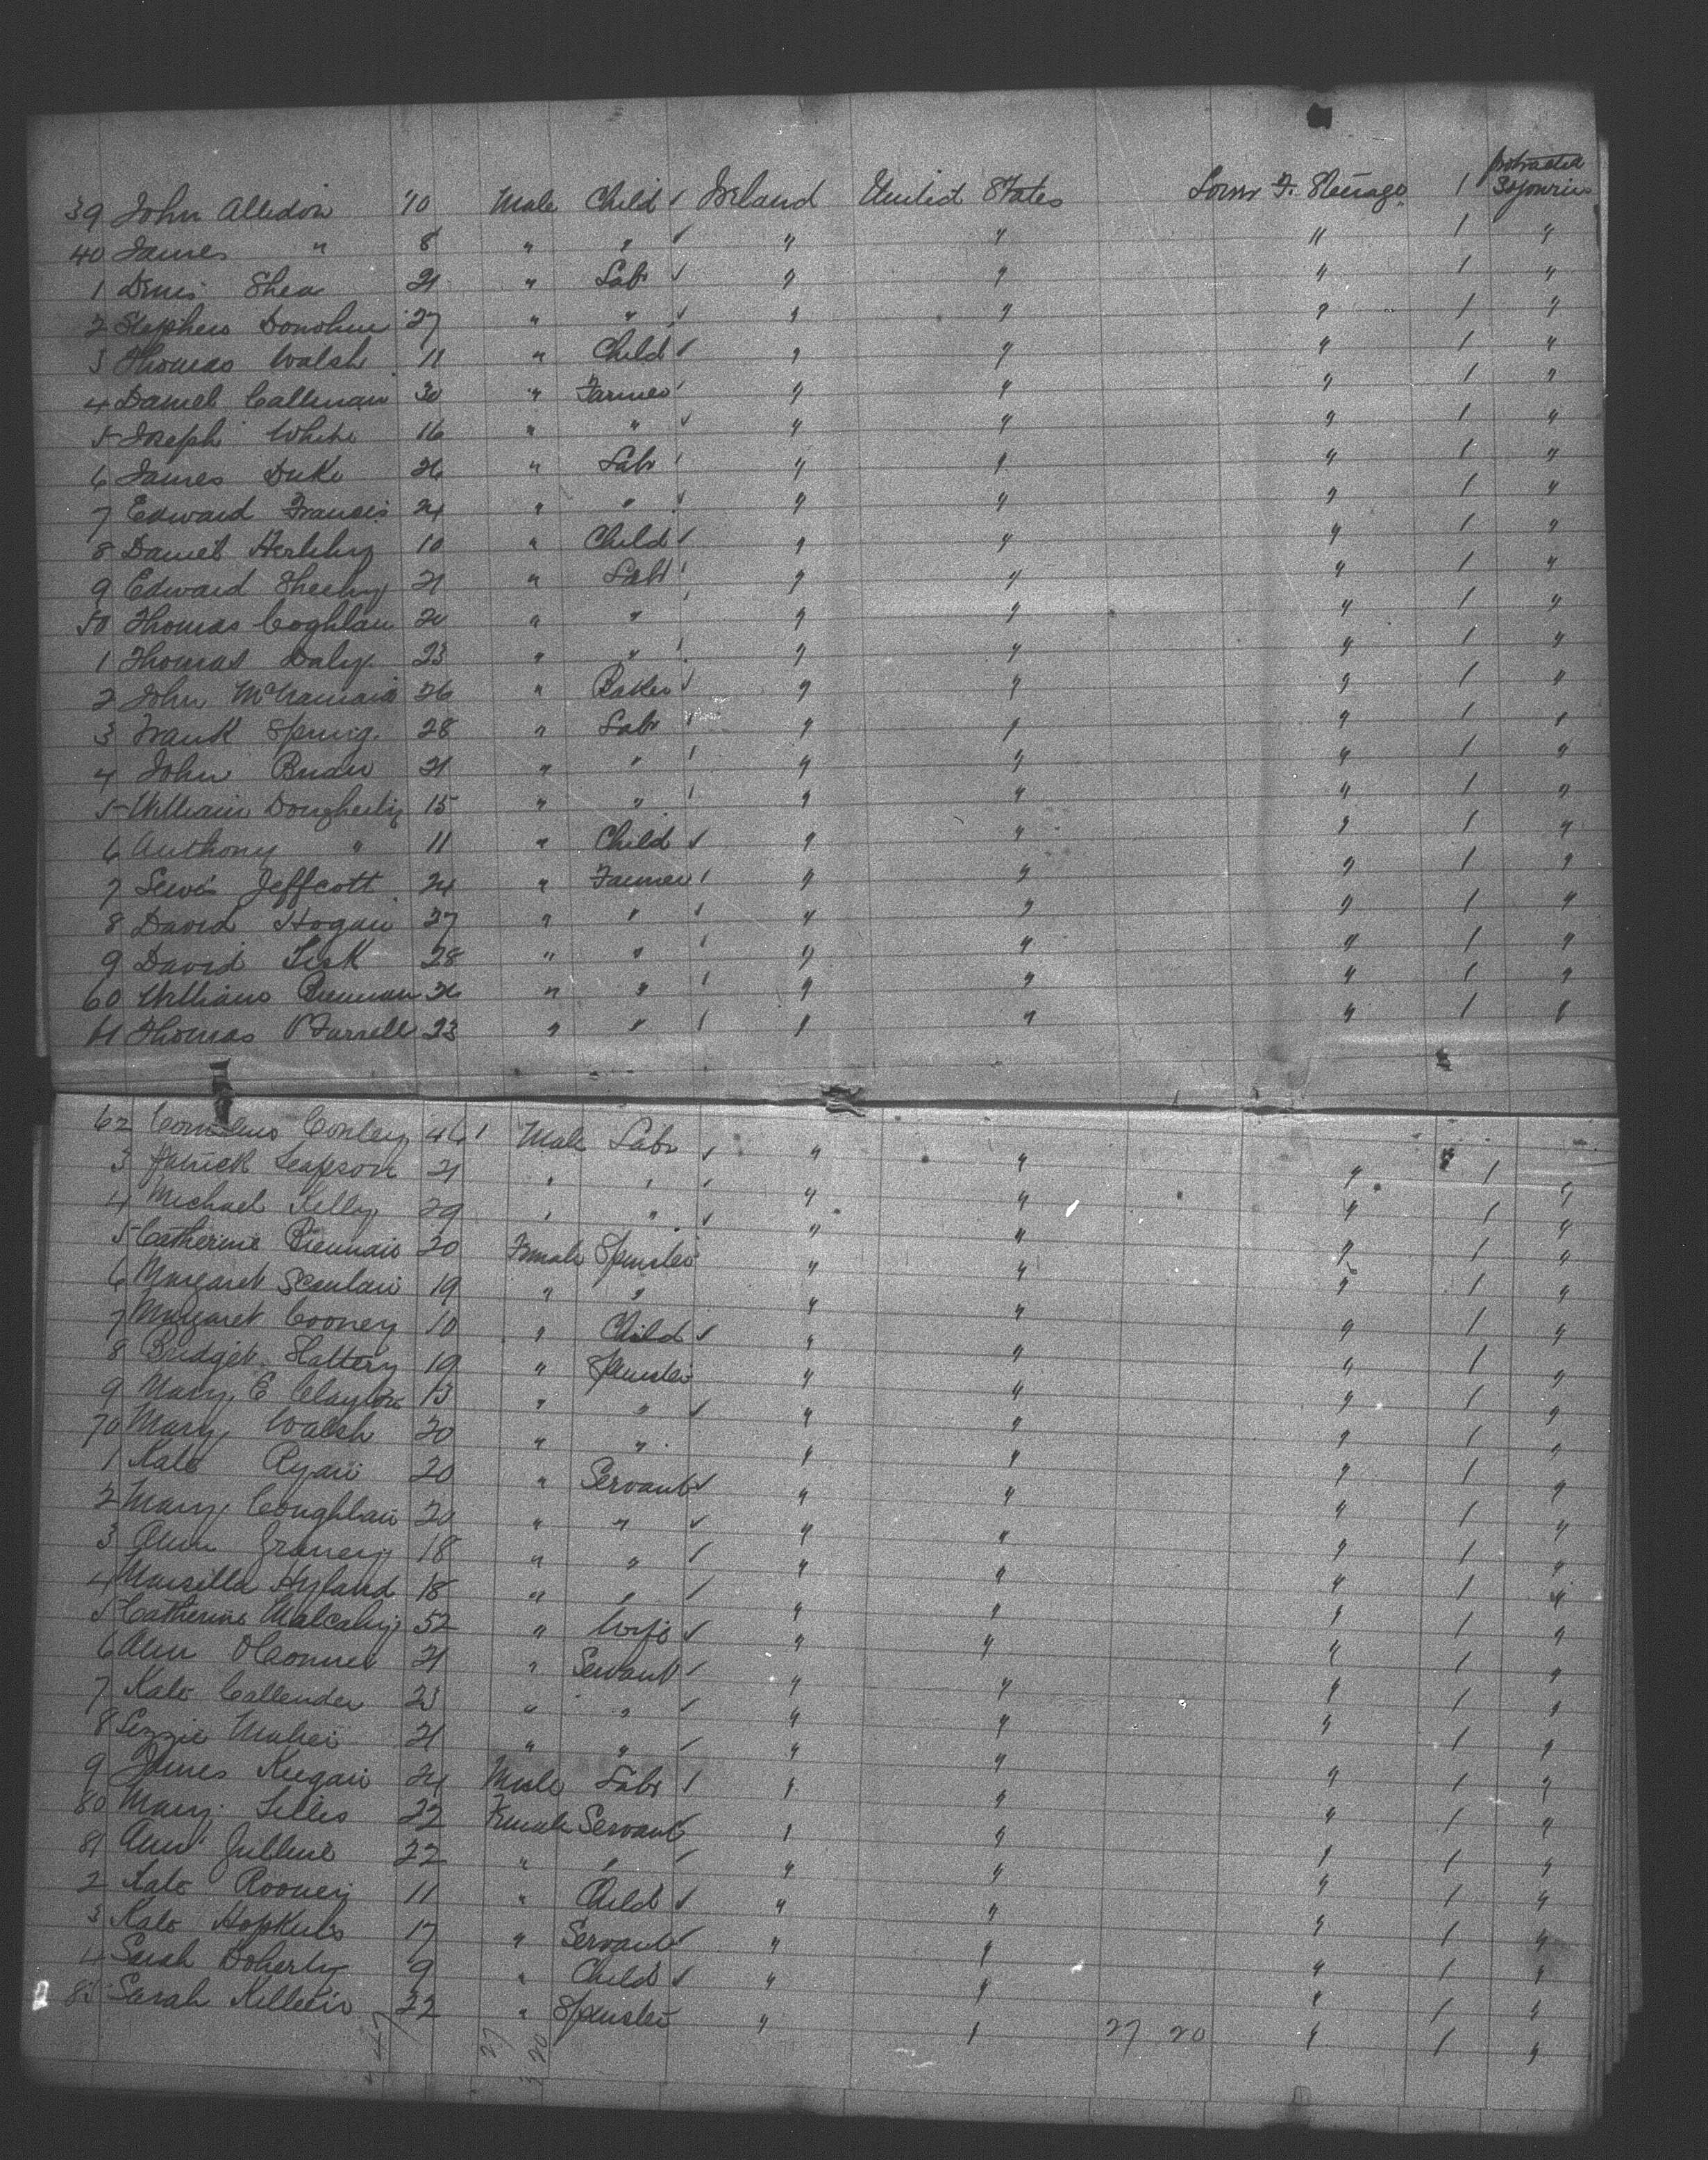 39 John Allidon 10 Male Child Ireland United States Lower F. Steerage 1 Protracted Sojourn
40 James " 8 " " " " " 1 "
1 Denis Shea 21 " Labr " " " 1 "
2 Stephen Donohue 27 " " " " " 1 "
3 Thomas Walsh 11 " Child " " " 1 "
4 Daniel Callinan 30 " Farmer " " " 1 "
5 Joseph White 16 " " " " " 1 "
6 James Duke 26 " Labr " " " 1 "
7 Edward Francis 24 " " " " " 1 "
8 Daniel Herlihy 10 " Child " " " 1 "
9 Edward Sheehy 21 " Labr " " " 1 "
50 Thomas Coghlan 20 " " " " " 1 "
1 Thomas Daly 23 " " " " " 1 "
2 John McNamara 26 " Baker " " " 1 "
3 Frank Spring 28 " Labr " " " 1 "
4 John Brian 21 " " " " " 1 "
5 William Dougherty 15 " " " " " 1 "
6 Anthony " 11 " Child " " " 1 "
7 Lewis Jeffcott 24 " Farmer " " " 1 "
8 David Hogan 27 " " " " " 1 "
9 David Lisk 28 " " " " " 1 "
60 William Brennan 26 " " " " " 1 "
61 Thomas O'Farrell 23 " " " " " 1 "
62 Cornelius Conley 46 Male Labr " " " 1 "
3 Patrick Leapson 21 " " " " " 1 "
4 Michael Kelly 29 " " " " " 1 "
5 Catherine Brennan 20 Female Spinster " " " 1 "
6 Margaret Scanlan 19 " " " " " 1 "
7 Margaret Cooney 10 " Child " " " 1 "
8 Bridget Slattery 19 " Spinster " " " 1 "
9 Mary E Clayton 13 " " " " " 1 "
70 Mary Walsh 20 " " " " " 1 "
1 Kate Ryan 20 " Servant " " " 1 "
2 Mary Coughlan 20 " " " " " 1 "
3 Ann Graney 18 " " " " " 1 "
4 Marsella Hyland 18 " " " " " 1 "
5 Catherine Mulcahy 52 " Wife " " " 1 "
6 Ann O'Connor 21 " Servant " " " 1 "
7 Kate Callender 23 " " " " " 1 "
8 Lizzie Maher 21 " " " " " 1 "
9 James Keegan 24 Male Labr " " " 1 "
80 Mary Lillis 22 Female Servant " " " 1 "
81 Ann 22 " " " " " 1 "
2 Kate Rooney 11 " Child " " " 1 "
3 Kate Hopkins 17 " Servant " " " 1 "
4 Sarah Doherty 9 " Child " " " 1 "
85 Sarah Killeen 22 " Spinster " " 27 20 " 1 "
47 27 20